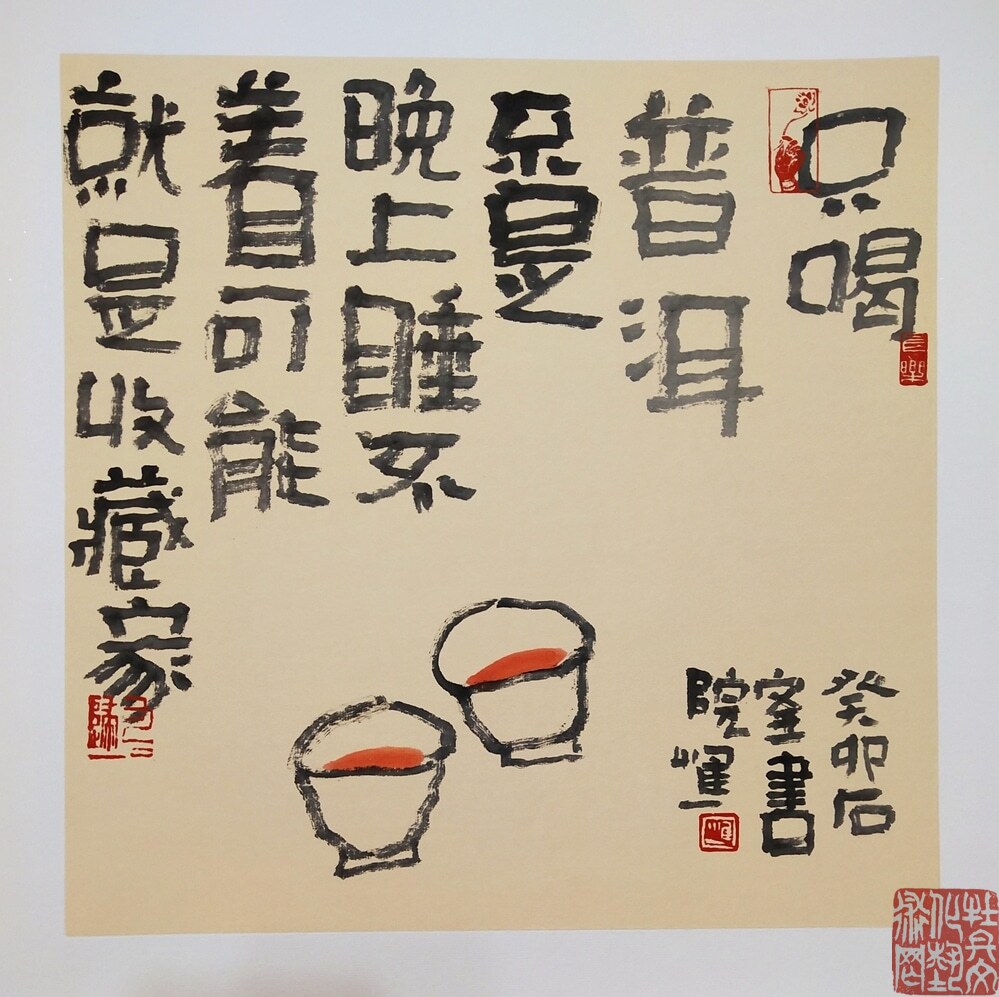 只喝
普洱
不是
晚上睡不
着可能
就是收藏家
癸卯石
室書
院